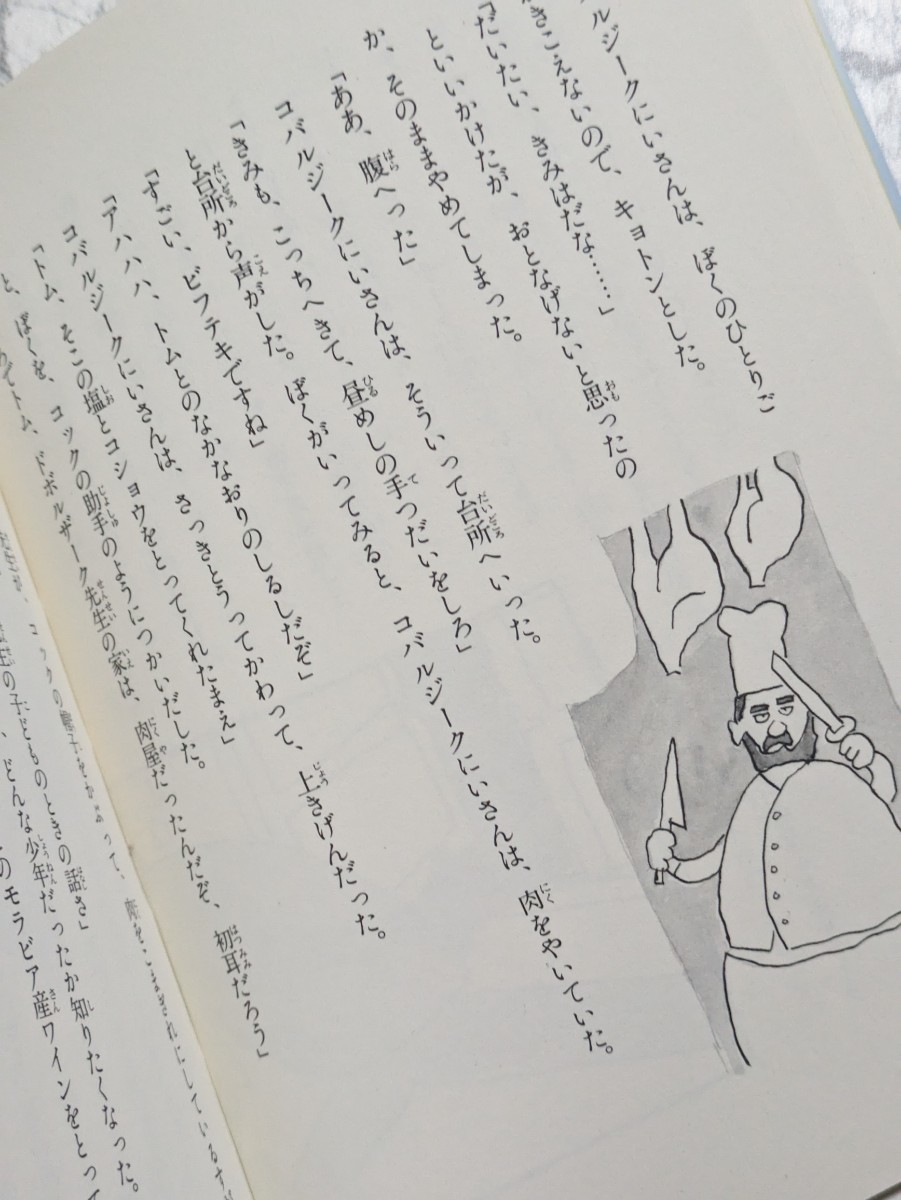 ルジークにいさんは、ぼくのひとりご
きこえないので、キョトンとした。
「だいたい、きみはだな……」
といいかけたが、おとなげないと思ったの
か、そのままやめてしまった。
「ああ、腹へった」
コバルジークにいさんは、そういって台所へいった。
「きみも、こっちへきて、昼めしの手つだいをしろ」
と台所から声がした。ぼくがいってみると、コバルジークにいさんは、肉をやいていた。
「すごい、ビフテキですね」
「アハハハ、トムとのなかなおりのしるしだぞ」
コバルジークにいさんは、さっきとうってかわって、上きげんだった。
「トム、そこの塩とコショウをとってくれたまえ」
と、ぼくを、コックの助手のようにつかいだした。
トム、ドボルザーク先生の家は、肉屋だったんだぞ、初耳だろう」
生の子どものときの話さ」
、どんな少年だったか知りたくなった。
のモラビア産ワインをとっ